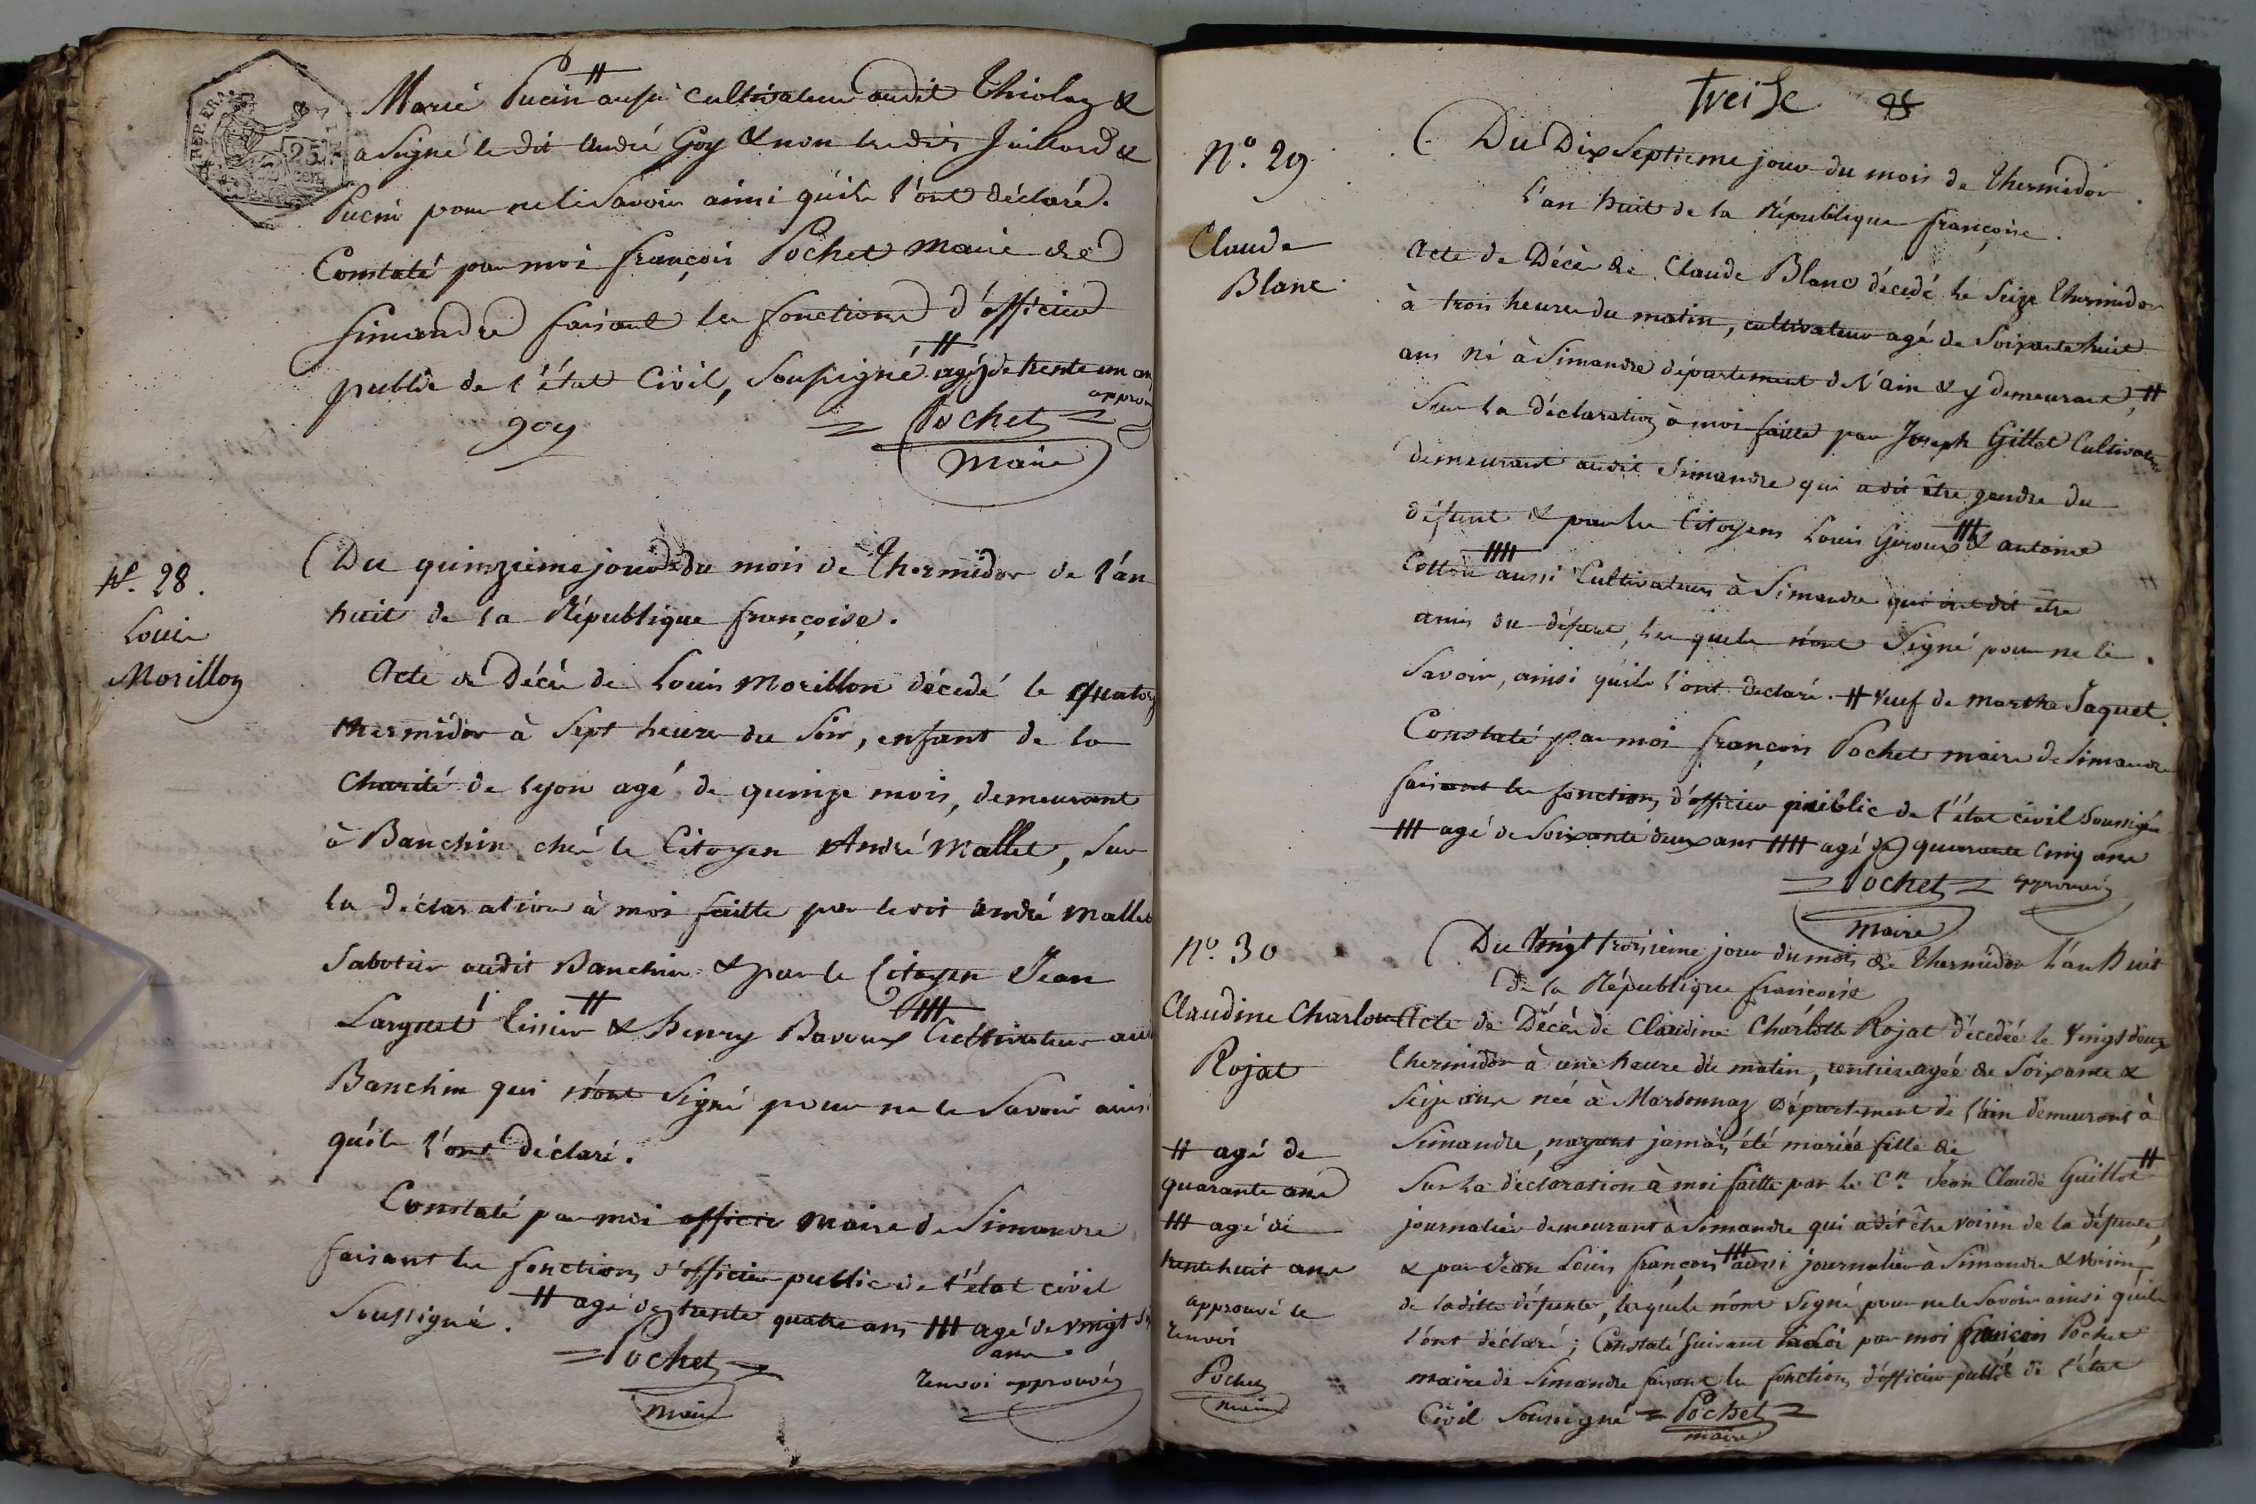 REP. FRA.
25
cen.
Marie Pucin # aussi cultivateur audit Thiolay &
a Signé le dit André Goy & non lesdits Juillard &
Pucin pour ne le Savoir ainsi qu'ils l'ont déclaré.
Constaté par moi françois Pochet Maire de
Simandre faisant les fonctions d'officier
public de l'état Civil, Soussigné # agé de trente un ans
approu
goy
Pochet
Maire
N°. 28.
Louis
Morillon
Du quinzieme jour du mois de Thermidor de l'an
huit de la République françoise.
Acte de Décès de Louis Morillon décedé le quatorze
thermidor à Sept heures du Soir, enfant de la
Charité de Lyon agé de quinze mois, demeurant
à Banchin ché le Citoyen André Mallet, Sur
la déclaration à moi faitte par le dit André Mallet
Sabotier audit Banchin & par le Citoyen Jean
Larguet tissier # & henry Bavoux # Cultivateur au
Banchin qui n'ont Signé pour ne le Savoir ainsi
qu'ils l'ont déclaré.
Constaté par moi officier Maire de Simandre
faisant les fonctions d'officier public de l'état civil
Soussigné. # agé de trente quatre ans # agé de vingt
ans
Pochet
Maire
renvoi approuvés
treise
N°. 29
Claude
Blanc
Du Dix Septieme jour du mois de thermidor
l'an huit de la République françoise.
Acte de Décès de Claude Blanc décedé le Seize thermidor
à trois heures du matin, cultivateur agé de Soixante huit
ans né à Simandre département de l'ain & y demeurant, #
Sur la déclaration à moi faitte par Joseph Gillet Cultivateur
demeurant audit Simandre qui a dit être gendre du
défunt & par les Citoyens Louis Giroux # & antoine
Cotton # aussi Cultivateurs à Simandre qui ont dit être
amis du défunt, les quels n'ont Signé pour ne le
Savoir, ainsi qu'ils l'ont declaré. # veuf de marthe Jaquet.
Constaté par moi françois Pochet maire de Simandre
faisant les fonctions d'officier public de l'état civil Soussigné
# agé de Soixante deux ans # agé de quarante cinq ans
Pochet approuvés
maire
N°. 30
Claudine Charlotte
Rojat
Du Vingt troisième jour du mois de thermidor l'an huit
de la République françoise
Acte de Décès de Claudine Charlotte Rojat décedée le Vingt deux
thermidor à une heure du matin, rentiere agée de Soixante &
Seize ans née à Marbonnaz Département de l'ain demeurant à
Simandre, nayant jamais été mariée fille de
Sur la déclaration à moi faitte par le Cn. Jean Claude Guillot #
journalier demeurant à Simandre qui a dit être voisin de la défunte,
& par Jean Louis françois # aussi journalier à Simandre & voisin
de laditte défunte, lesquels n'ont Signé pour ne le Savoir ainsi qu'ils
l'ont déclaré; Constaté suivant la Loi par moi françois Pochet
maire de Simandre faisant les fonctions d'officier public de l'état
Civil Soussigné Pochet
maire
# agé de
quarante ans
# agé de
trente huit ans
approuvé le
renvoi
Pochet
maire